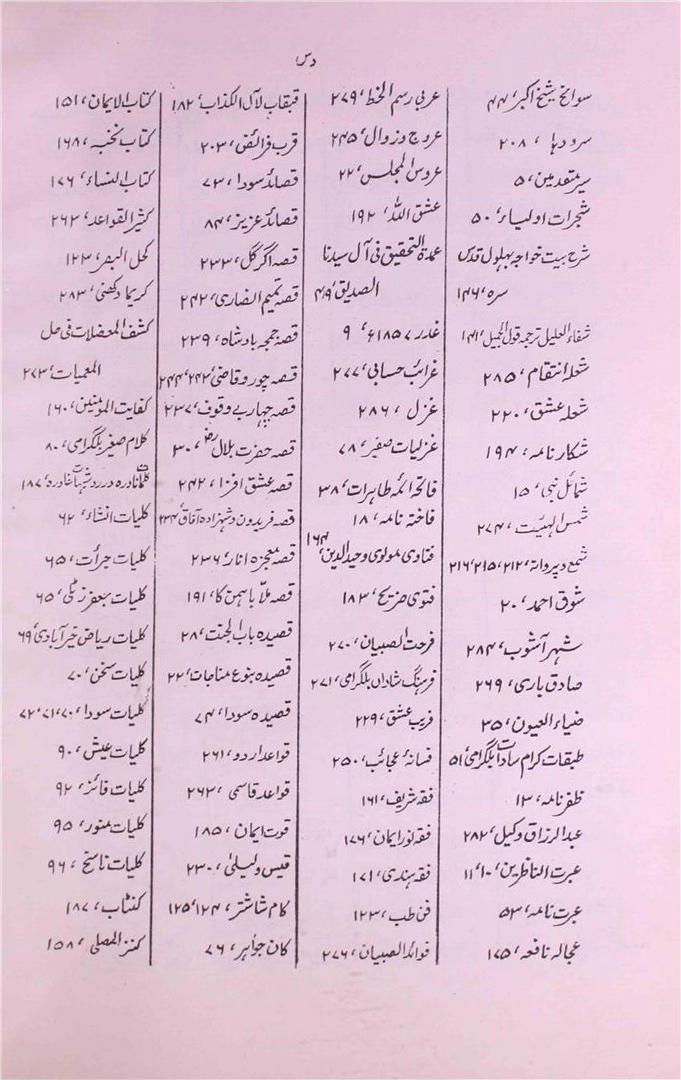 دس
سوانح شیخ اکبر، ۴۴
سرودہا، ۲۰۸
سیر متقدمین، ۵
شجرات اولیاء، ۵۰
شرح بیت خواجہ بہلول قدس
سرہ، ۱۴۶
شفاء العلیل ترجمہ قول الجمیل، ۱۴۱
شعلہ انتقام، ۲۸۵
شعلہ عشق، ۲۲۰
شکار نامہ، ۱۹۴
شمائل نبی، ۱۵
شمس الہیئت، ۲۷۴
شمع و پروانہ، ۲۱۲، ۲۱۵، ۲۱۶
شوق احمد، ۲۰
شہر آشوب، ۲۸۴
صادق باری، ۲۶۹
ضیاء العیون، ۲۵
طبقات کرام سادات بلگرامی، ۵۱
ظفر نامہ، ۱۳
عبد الرزاق وکیل، ۲۸۲
عبرت الناظرین، ۱۰، ۱۱
عبرت نامہ، ۵۳
عجالہ نافعہ، ۱۷۵
عربی رسم الخط، ۲۷۹
عروج و زوال، ۲۴۵
عروس المجلس، ۲۲
عشق اللہ، ۱۹۲
عمدۃ التحقیق فی آل سیدنا
الصدیق، ۴۹
غدر ۱۸۵۷ء، ۹
غرائب حسابی، ۲۷۷
غزل، ۲۸۶
غزلیات صفیر، ۷۸
فاتحہ ائمہ طاہرات، ۳۸
فاختہ نامہ، ۱۸
فتاوی مولوی وحید الدین، ۱۶۴
فتوی ضریح، ۱۸۳
فرحت الصبیان، ۲۷۰
فرہنگ شاداں بلگرامی، ۲۷۱
فریب عشق، ۲۲۹
فسانۂ عجائب، ۲۵۰
فقہ شریف، ۱۶۱
فقہ نور ایمان، ۱۷۶
فقہ ہندی، ۱۷۱
فن طب، ۱۲۳
فوائد الصبیان، ۲۷۶
قبقاب لآل الکذاب، ۱۸۲
قرب فرائض، ۲۰۳
قصائد سودا، ۷۳
قصائد عزیز، ۸۴
قصہ اگر گل، ۲۳۳
قصہ تمیم انصاری، ۲۴۲
قصہ جمجمہ بادشاہ، ۲۳۹
قصہ چور و قاضی، ۲۴۲، ۲۴۴
قصہ چہار بے وقوف، ۲۳۷
قصہ حضرت بلال رض، ۳۰
قصہ عشق افزا، ۲۴۲
قصہ فریدون و شہزادہ آفاق، ۲۳۴
قصہ معجزہ انار، ۲۳۶
قصہ ملا باہمن کا، ۱۹۱
قصیدہ باب الجنت، ۲۸
قصیدہ بنوع مناجات، ۲۲
قصیدہ سودا، ۷۴
قواعد اردو، ۲۶۱
قواعد قاسمی، ۲۶۳
قوت ایمان، ۱۸۵
قیس و لیلیٰ، ۲۳۰
کام شاشتر، ۱۲۴، ۱۲۵
کان جواہر، ۷۶
کتاب الایمان، ۱۵۱
کتاب نخبہ، ۱۶۸
کتاب النساء، ۱۷۶
کثیر القواعد، ۲۶۳
کحل البصر، ۱۲۳
کریما دکھنی، ۲۸۳
کشف المعضلات فی حل
المعمیات، ۲۷۳
کفایت المومنین، ۱۶۰
کلام صغیر بلگرامی، ۸۰
کلمات نادرہ در رد شبہات غادرہ، ۱۸۷
کلیات انشاء، ۶۲
کلیات جرأت، ۶۵
کلیات جعفر زٹلی، ۶۵
کلیات ریاض خیر آبادی، ۶۹
کلیات سخن، ۷۰
کلیات سودا، ۷۰، ۷۱، ۷۲
کلیات عیش، ۹۰
کلیات فائز، ۹۲
کلیات منور، ۹۵
کلیات ناسخ، ۹۶
کنٹاب، ۱۸۷
کنز المصلی، ۱۵۸